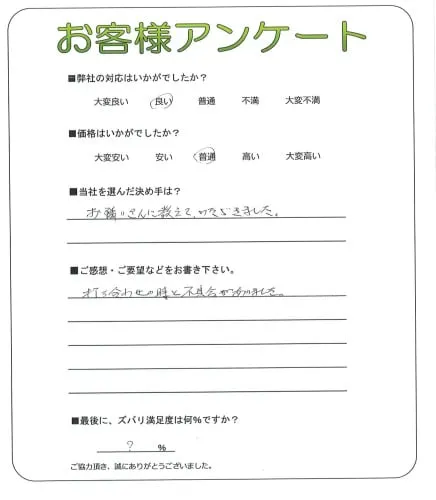 お客様アンケート
■弊社の対応はいかがでしたか?
大変良い 良い 普通 不満 大変不満
■価格はいかがでしたか?
大変安い 安い 普通 高い 大変高い
■当社を選んだ決め手は?
お隣りさんに教えていただきました。
■ご感想・ご要望などをお書き下さい。
打ち合わせの時と不具合がありました。
■最後に、ズバリ満足度は何%ですか?
? %
ご協力頂き、誠にありがとうございました。